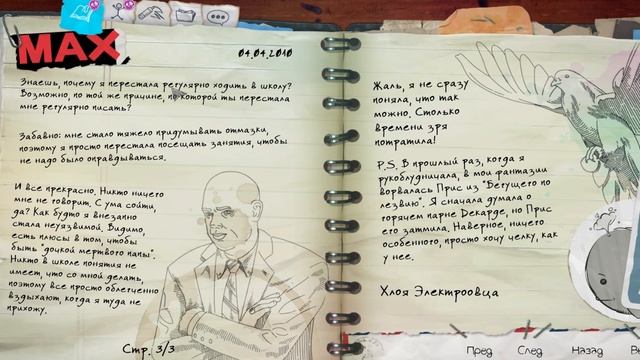 MAX
04.04.2010
Знаешь, почему я перестала регулярно ходить в школу?
Возможно, по той же причине, по которой ты перестала
мне регулярно писать?
Забавно: мне стало тяжело придумывать отмазки,
поэтому я просто перестала посещать занятия, чтобы
не надо было оправдываться.
И все прекрасно. Никто ничего
мне не говорит. С ума сойти,
да? Как будто я внезапно
стала неуязвимой. Видимо,
есть плюсы в том, чтобы
быть "дочкой мертвого папы".
Никто в школе понятия не
имеет, что со мной делать,
поэтому все просто облегченно
вздыхают, когда я туда не
прихожу.
Стр. 3/3
Жаль, я не сразу
поняла, что так
можно. Столько
времени зря
потратила!
P.S. В прошлый раз, когда я
рукоблудничала, в мои фантазии
ворвалась Прис из "Бегущего по
лезвию". Я сначала думала о
горячем парне Декарде, но Прис
его затмила. Наверное, ничего
особенного, просто хочу челку, как
у нее.
Хлоя Электроовца
Пред След Назад